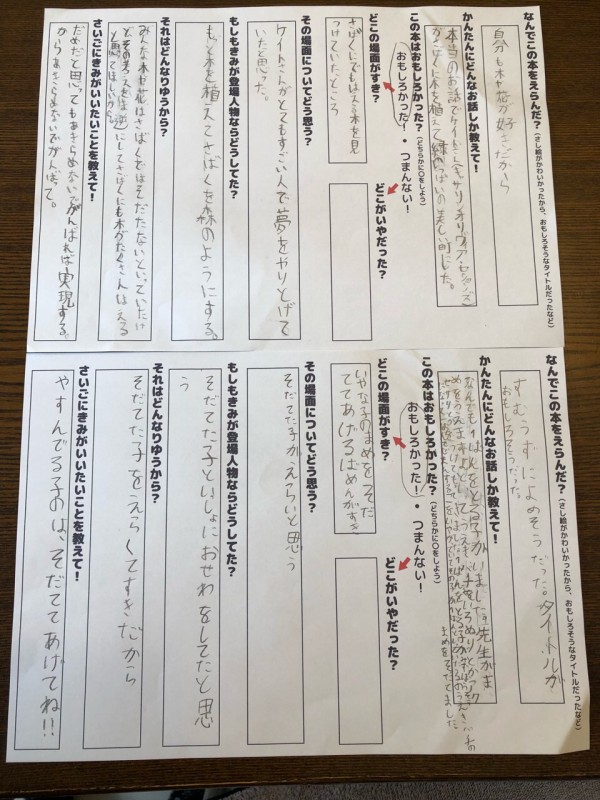 なんでこの本をえらんだ？（さし絵がかわいかったから、おもしろそうなタイトルだったなど）
自分も木や花が好きだから
かんたんにどんなお話しか教えて！
本当のお話でケイトさん
さばくに木を植えて緑いっぱいの美しい町にした。
この本はおもしろかった？（どちらかに○をしよう）
おもしろかった！・つまんない！
どこの場面がすき？
さばくにでもはえる木を見
つけていたところ
どこがいやだった？
その場面についてどう思う？
ケイトさんがとてもすごい人で夢をやりとげて
いたと思った。
もしもきみが登場人物ならどうしてた？
もっと木を植えてさばくを森のようにする。
それはどんなりゆうから？
みんな木や花はさばくではそだたないといっていたけ
どその考えをぎゃくにしてさばくにも木がたくさんはえる
と思ってほしいから。
さいごにきみがいいたいことを教えて！
だめだと思ってもあきらめないでがんばれば実現する。
からあきらめないでがんばって。
なんでこの本をえらんだ？（さし絵がかわいかったから、おもしろそうなタイトルだったなど）
すむうずによめそうだった。タイトルが
おもしろそうだった。
かんたんにどんなお話しか教えて！
この本はおもしろかった？（どちらかに○をしよう）
おもしろかった！・つまんない！
どこの場面がすき？
いやな子のまめをそだ
ててあげるばめんがすき
どこがいやだった？
その場面についてどう思う？
そだてた子がえらいと思う
もしもきみが登場人物ならどうしてた？
そだてた子といしょにおせわをしてたと思
う
それはどんなりゆうから？
そだてた子をえらくてすきだから
さいごにきみがいいたいことを教えて！
やすんでる子のは、そだててあげてね!!